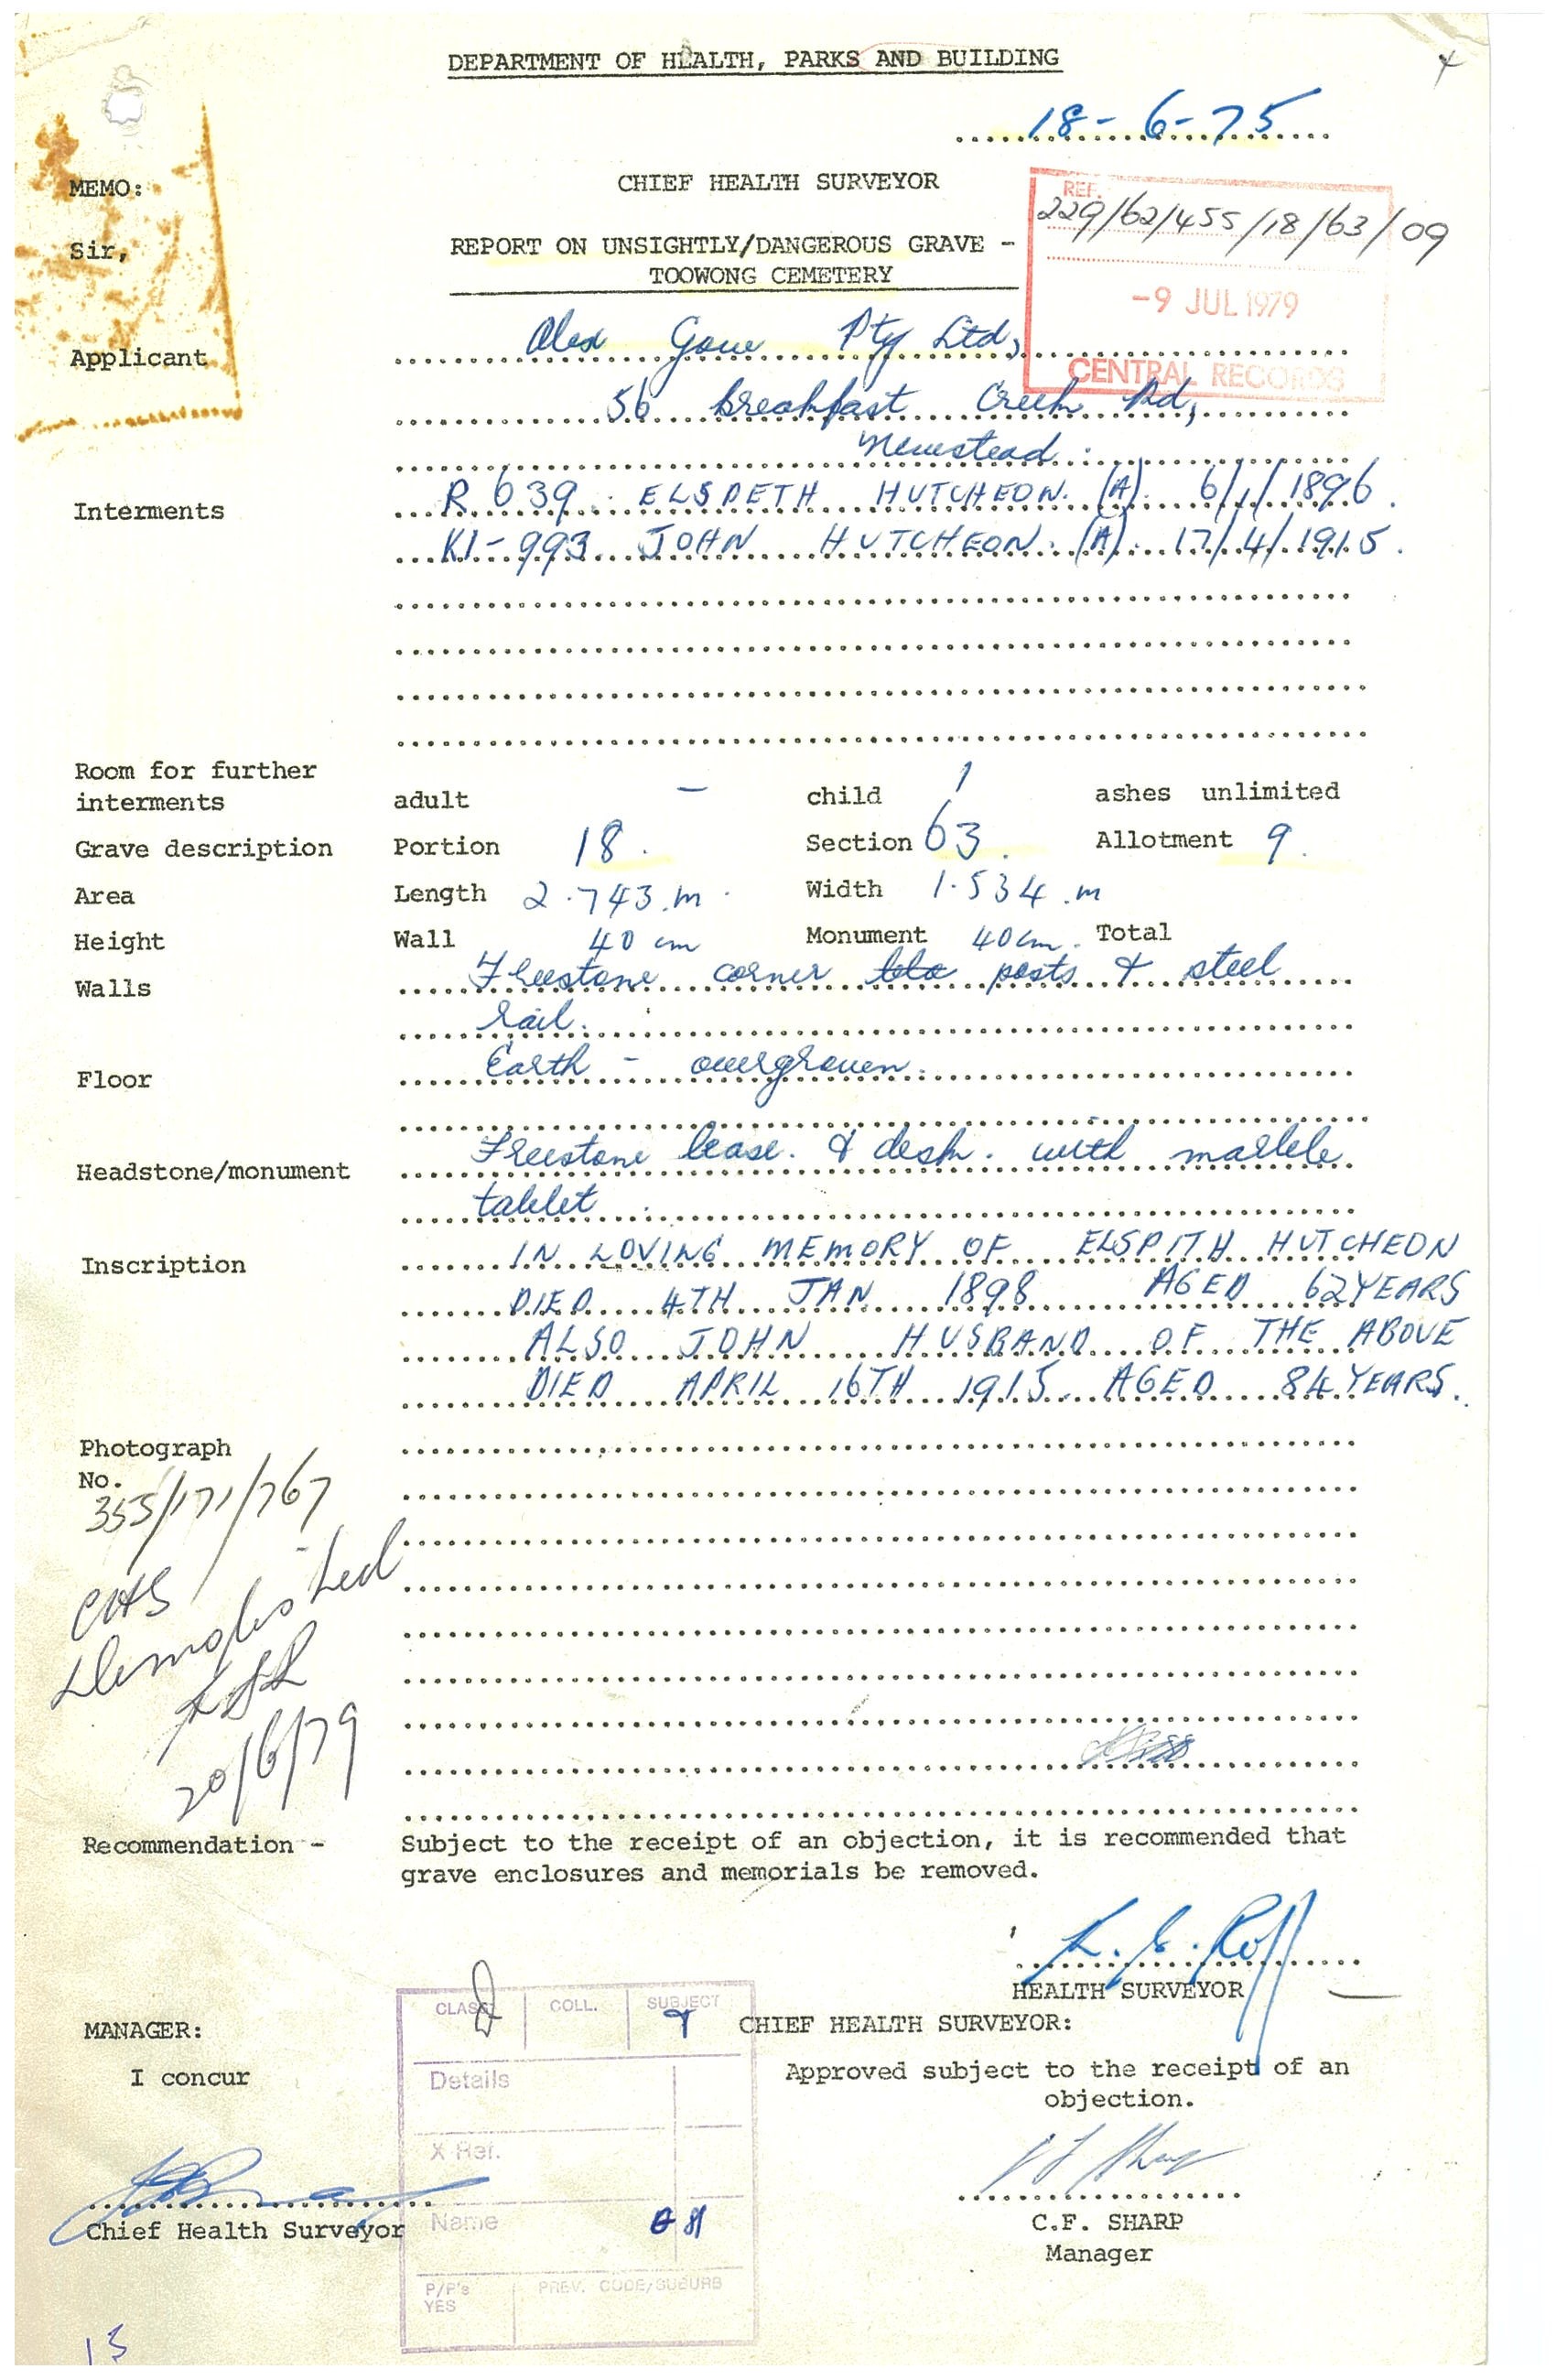 DEPARTMENT OF HEALTH, PARKS AND BUILDING
18-6-75
MEMO: CHIEF HEALTH SURVEYOR
REF.
229/62/455/18/63/09
-9 JUL 1979
CENTRAL RECORDS
Sir, REPORT ON UNSIGHTLY/DANGEROUS GRAVE -
TOOWONG CEMETERY
Applicant Alex Gow Pty Ltd,
56 Breakfast Creek Rd,
Newstead.
Interments R 639. ELSPETH HUTCHEON. (A). 6/1/1896.
K1-993 JOHN HUTCHEON. (A). 17/4/1915.
Room for further
interments adult - child 1 ashes unlimited
Grave description Portion 18. Section 63. Allotment 9.
Area Length 2.743.m. Width 1.534.m
Height Wall 40 cm Monument 40cm. Total
Walls Freestone corner posts & steel
rail.
Floor Earth - overgrown.
Headstone/monument Freestone base. & desk. with marble
tablet.
Inscription IN LOVING MEMORY OF ELSPITH HUTCHEON
DIED 4TH JAN 1898 AGED 62 YEARS
ALSO JOHN HUSBAND OF THE ABOVE
DIED APRIL 16TH 1915 AGED 84 YEARS.
Photograph
No.
355/171/767
CHS
Demolished
20/6/79
Recommendation - Subject to the receipt of an objection, it is recommended that
grave enclosures and memorials be removed.
HEALTH SURVEYOR
MANAGER: CHIEF HEALTH SURVEYOR:
I concur Approved subject to the receipt of an
objection.
Chief Health Surveyor
C.F. SHARP
Manager
CLASS COLL. SUBJECT
Details
X Ref.
Name
P/P's
YES
PREV. CODE/SUBURB
15